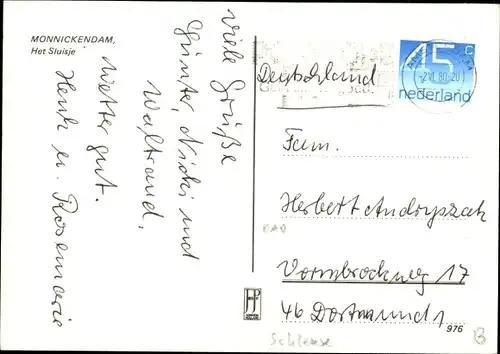 MONNICKENDAM,
Het Sluisje
Viele Grüße
Günter, Nicki und
Waltraud.
Wetter gut.
Henk u. Rosemarie
Deutschland
45 c
nederland
Fam.
Herbert Andryszak
Vormbrockweg 17
46 Dortmund 1
976
Schleuse